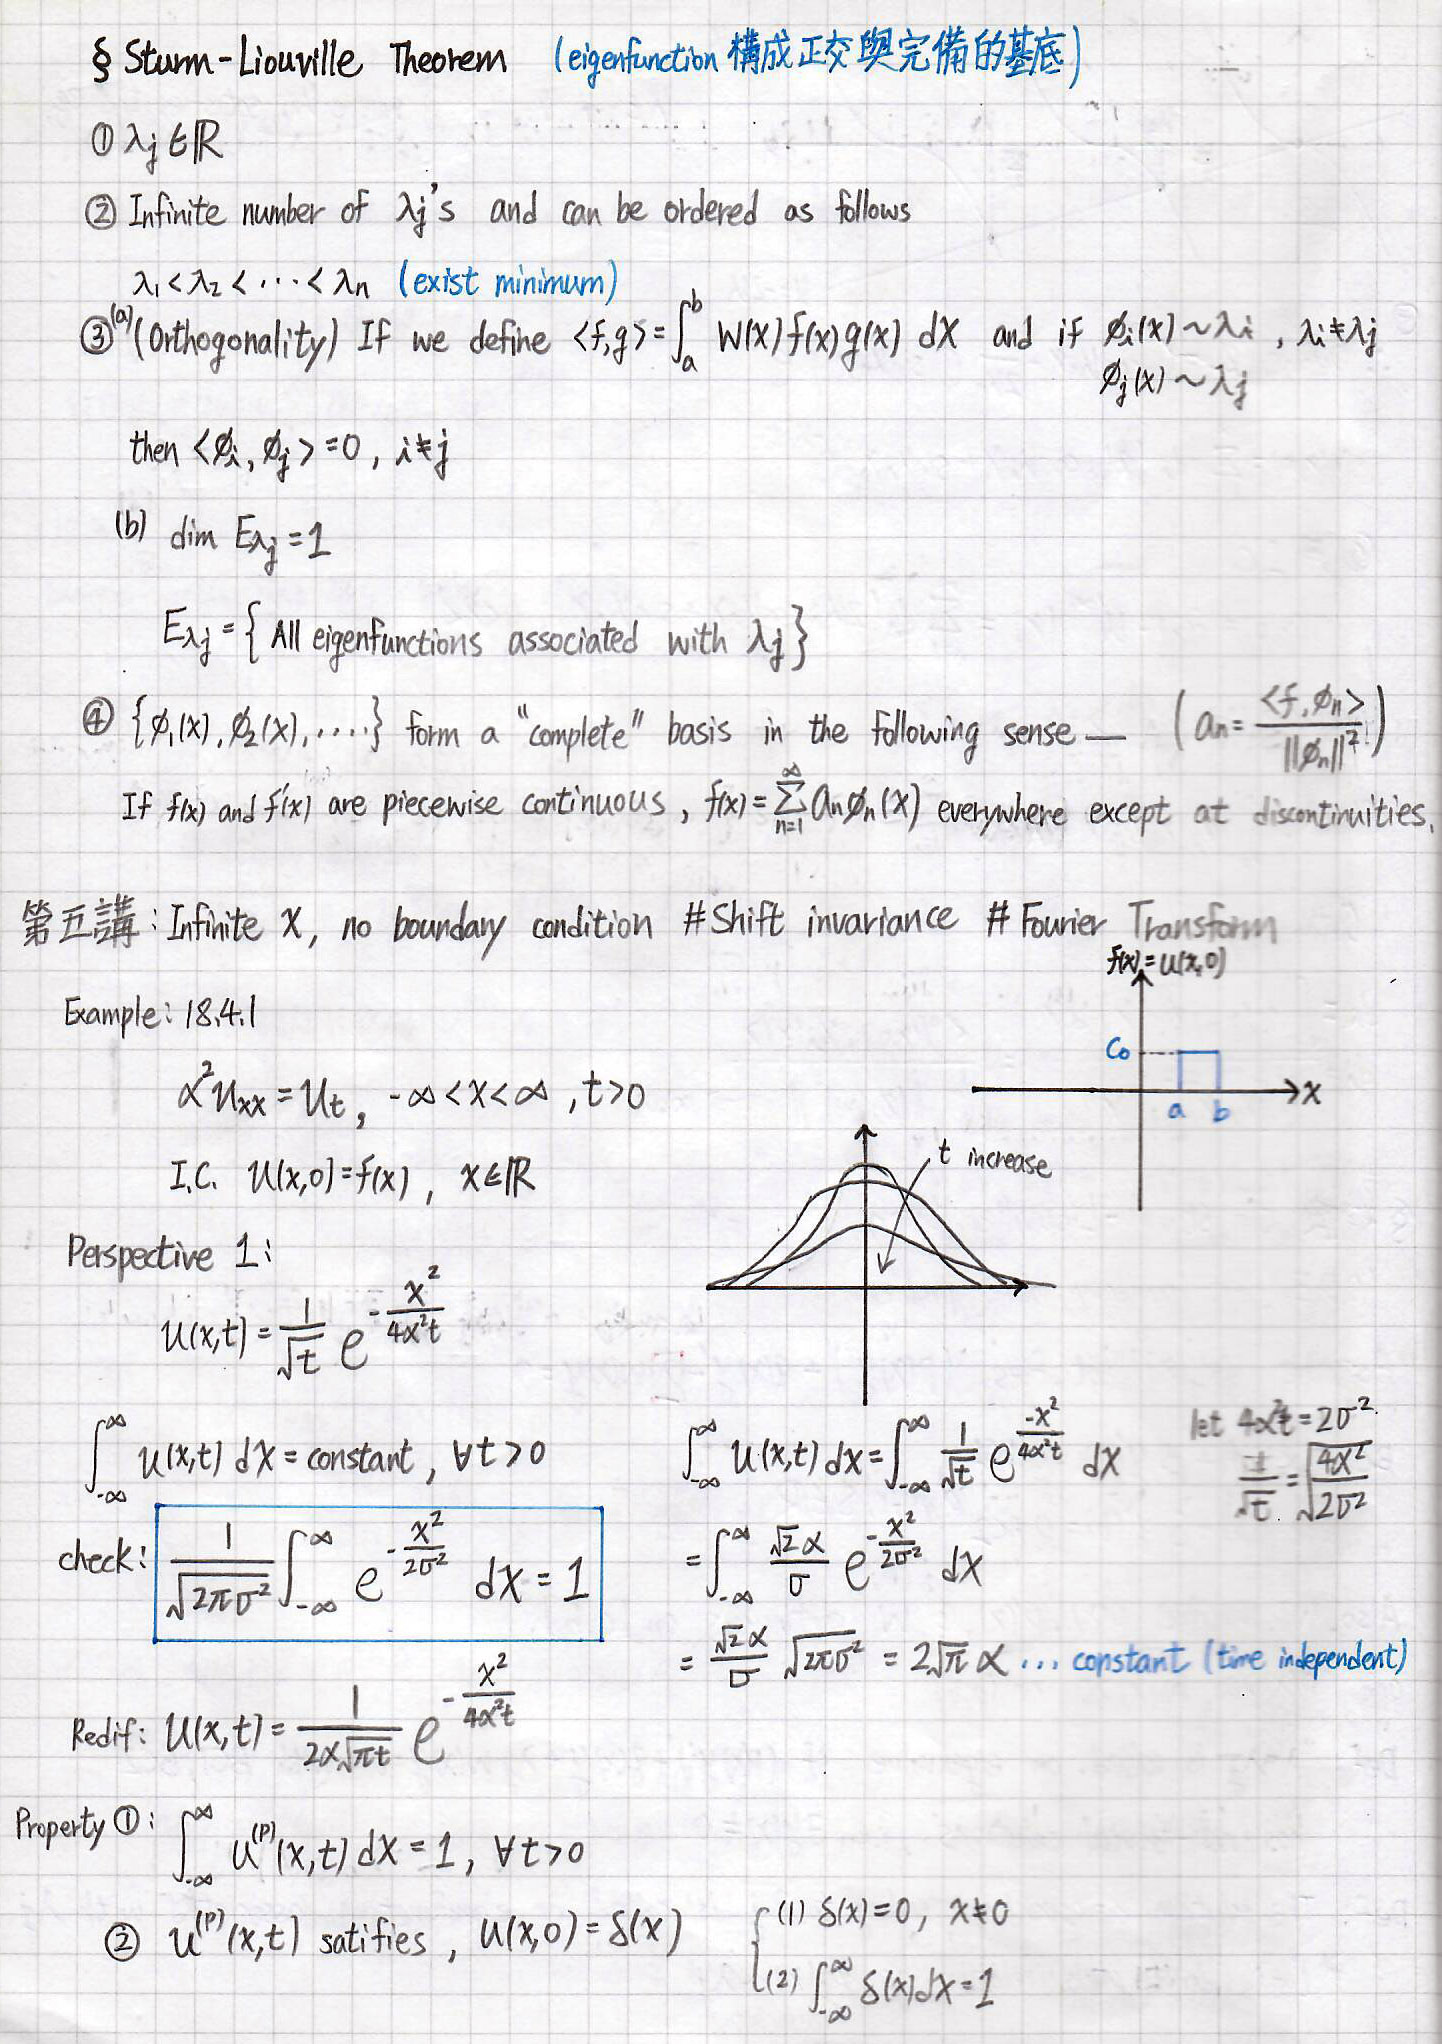 § Sturm-Liouville Theorem (eigenfunction 構成正交與完備的基底)
① λj ∈ ℝ
② Infinite number of λj's and can be ordered as follows
λ1 < λ2 < ··· < λn (exist minimum)
③(a) (Orthogonality) If we define <f,g> = ∫_a^b W(x)f(x)g(x) dx and if φi(x) ~ λi , λi ≠ λj
φj(x) ~ λj
then <φi, φj> = 0, i ≠ j
(b) dim Eλj = 1
Eλj = { All eigenfunctions associated with λj }
④ {φ1(x), φ2(x), ····} form a "complete" basis in the following sense — (an = <f, φn> / ||φn||²)
If f(x) and f'(x) are piecewise continuous, f(x) = ∑_{n=1}^∞ an φn(x) everywhere except at discontinuities.
第五講: Infinite x, no boundary condition #Shift invariance #Fourier Transform
f(x) = u(x,0)
Example: 18.4.1
C0
α² uxx = ut, -∞ < x < ∞, t > 0
x
a b
I.C. u(x,0) = f(x), x ∈ ℝ
t increase
Perspective 1:
u(x,t) = 1/√t e^{-x²/4α²t}
∫_{-∞}^{∞} u(x,t) dx = constant, ∀t > 0
∫_{-∞}^{∞} u(x,t) dx = ∫_{-∞}^{∞} 1/√t e^{-x²/4α²t} dx
let 4α²t = 2σ²
1/√t = √(4α²/2σ²)
check: 1/√(2πσ²) ∫_{-∞}^{∞} e^{-x²/2σ²} dx = 1
= ∫_{-∞}^{∞} √2α/σ e^{-x²/2σ²} dx
= √2α/σ √(2πσ²) = 2√π α ... constant (time independent)
Redif: u(x,t) = 1/(2α√(πt)) e^{-x²/4α²t}
Property ①: ∫_{-∞}^{∞} u^(p)(x,t) dx = 1, ∀t > 0
② u^(p)(x,t) satifies, u(x,0) = δ(x)
(1) δ(x) = 0, x ≠ 0
(2) ∫_{-∞}^{∞} δ(x)dx = 1